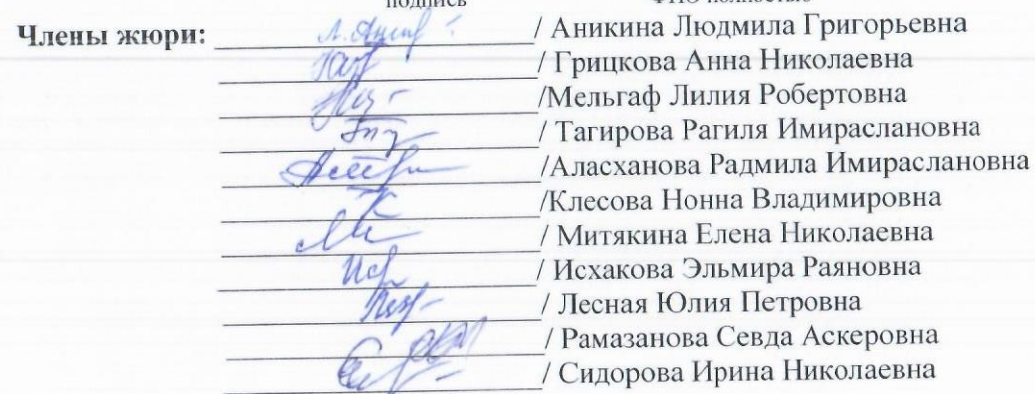 подпись ФИО полностью
Члены жюри: / Аникина Людмила Григорьевна
/ Грицкова Анна Николаевна
/Мельгаф Лилия Робертовна
/ Тагирова Рагиля Имираслановна
/Аласханова Радмила Имираслановна
/Клесова Нонна Владимировна
/ Митякина Елена Николаевна
/ Исхакова Эльмира Раяновна
/ Лесная Юлия Петровна
/ Рамазанова Севда Аскеровна
/ Сидорова Ирина Николаевна